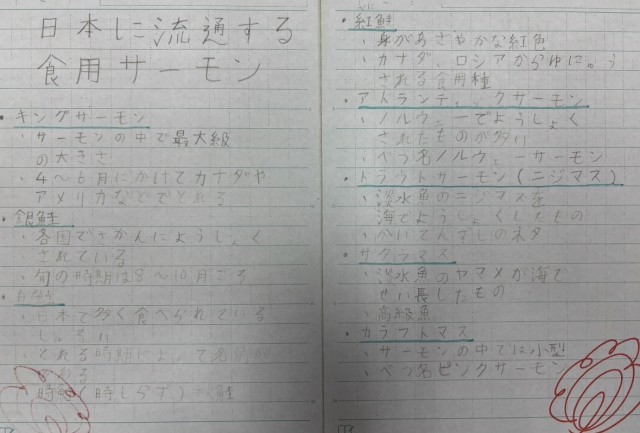 日本に流通する
食用サーモン
・キングサーモン
・サーモンの中で最大級
の大きさ
・4〜6月にかけてカナダや
アメリカなどでとれる
・銀鮭
・各国でさかんにようしょく
されている
・旬の時期は8〜10月ごろ
・日本で多く食べられている
・とれる時期によって名前が
・紅鮭
・身があざやかな紅色
・カナダ、ロシアからゆにゅう
される食用種
・アトランティックサーモン
・ノルウェーでようしょく
されたものが多い
・べつ名ノルウェーサーモン
・トラウトサーモン(ニジマス)
・淡水魚のニジマスを
海でようしょくしたもの
・かいてんずしのネタ
・サクラマス
・淡水魚のヤマメが海で
せい長したもの
・高級魚
・カラフトマス
・サーモンの中では小型
・べつ名ピンクサーモン